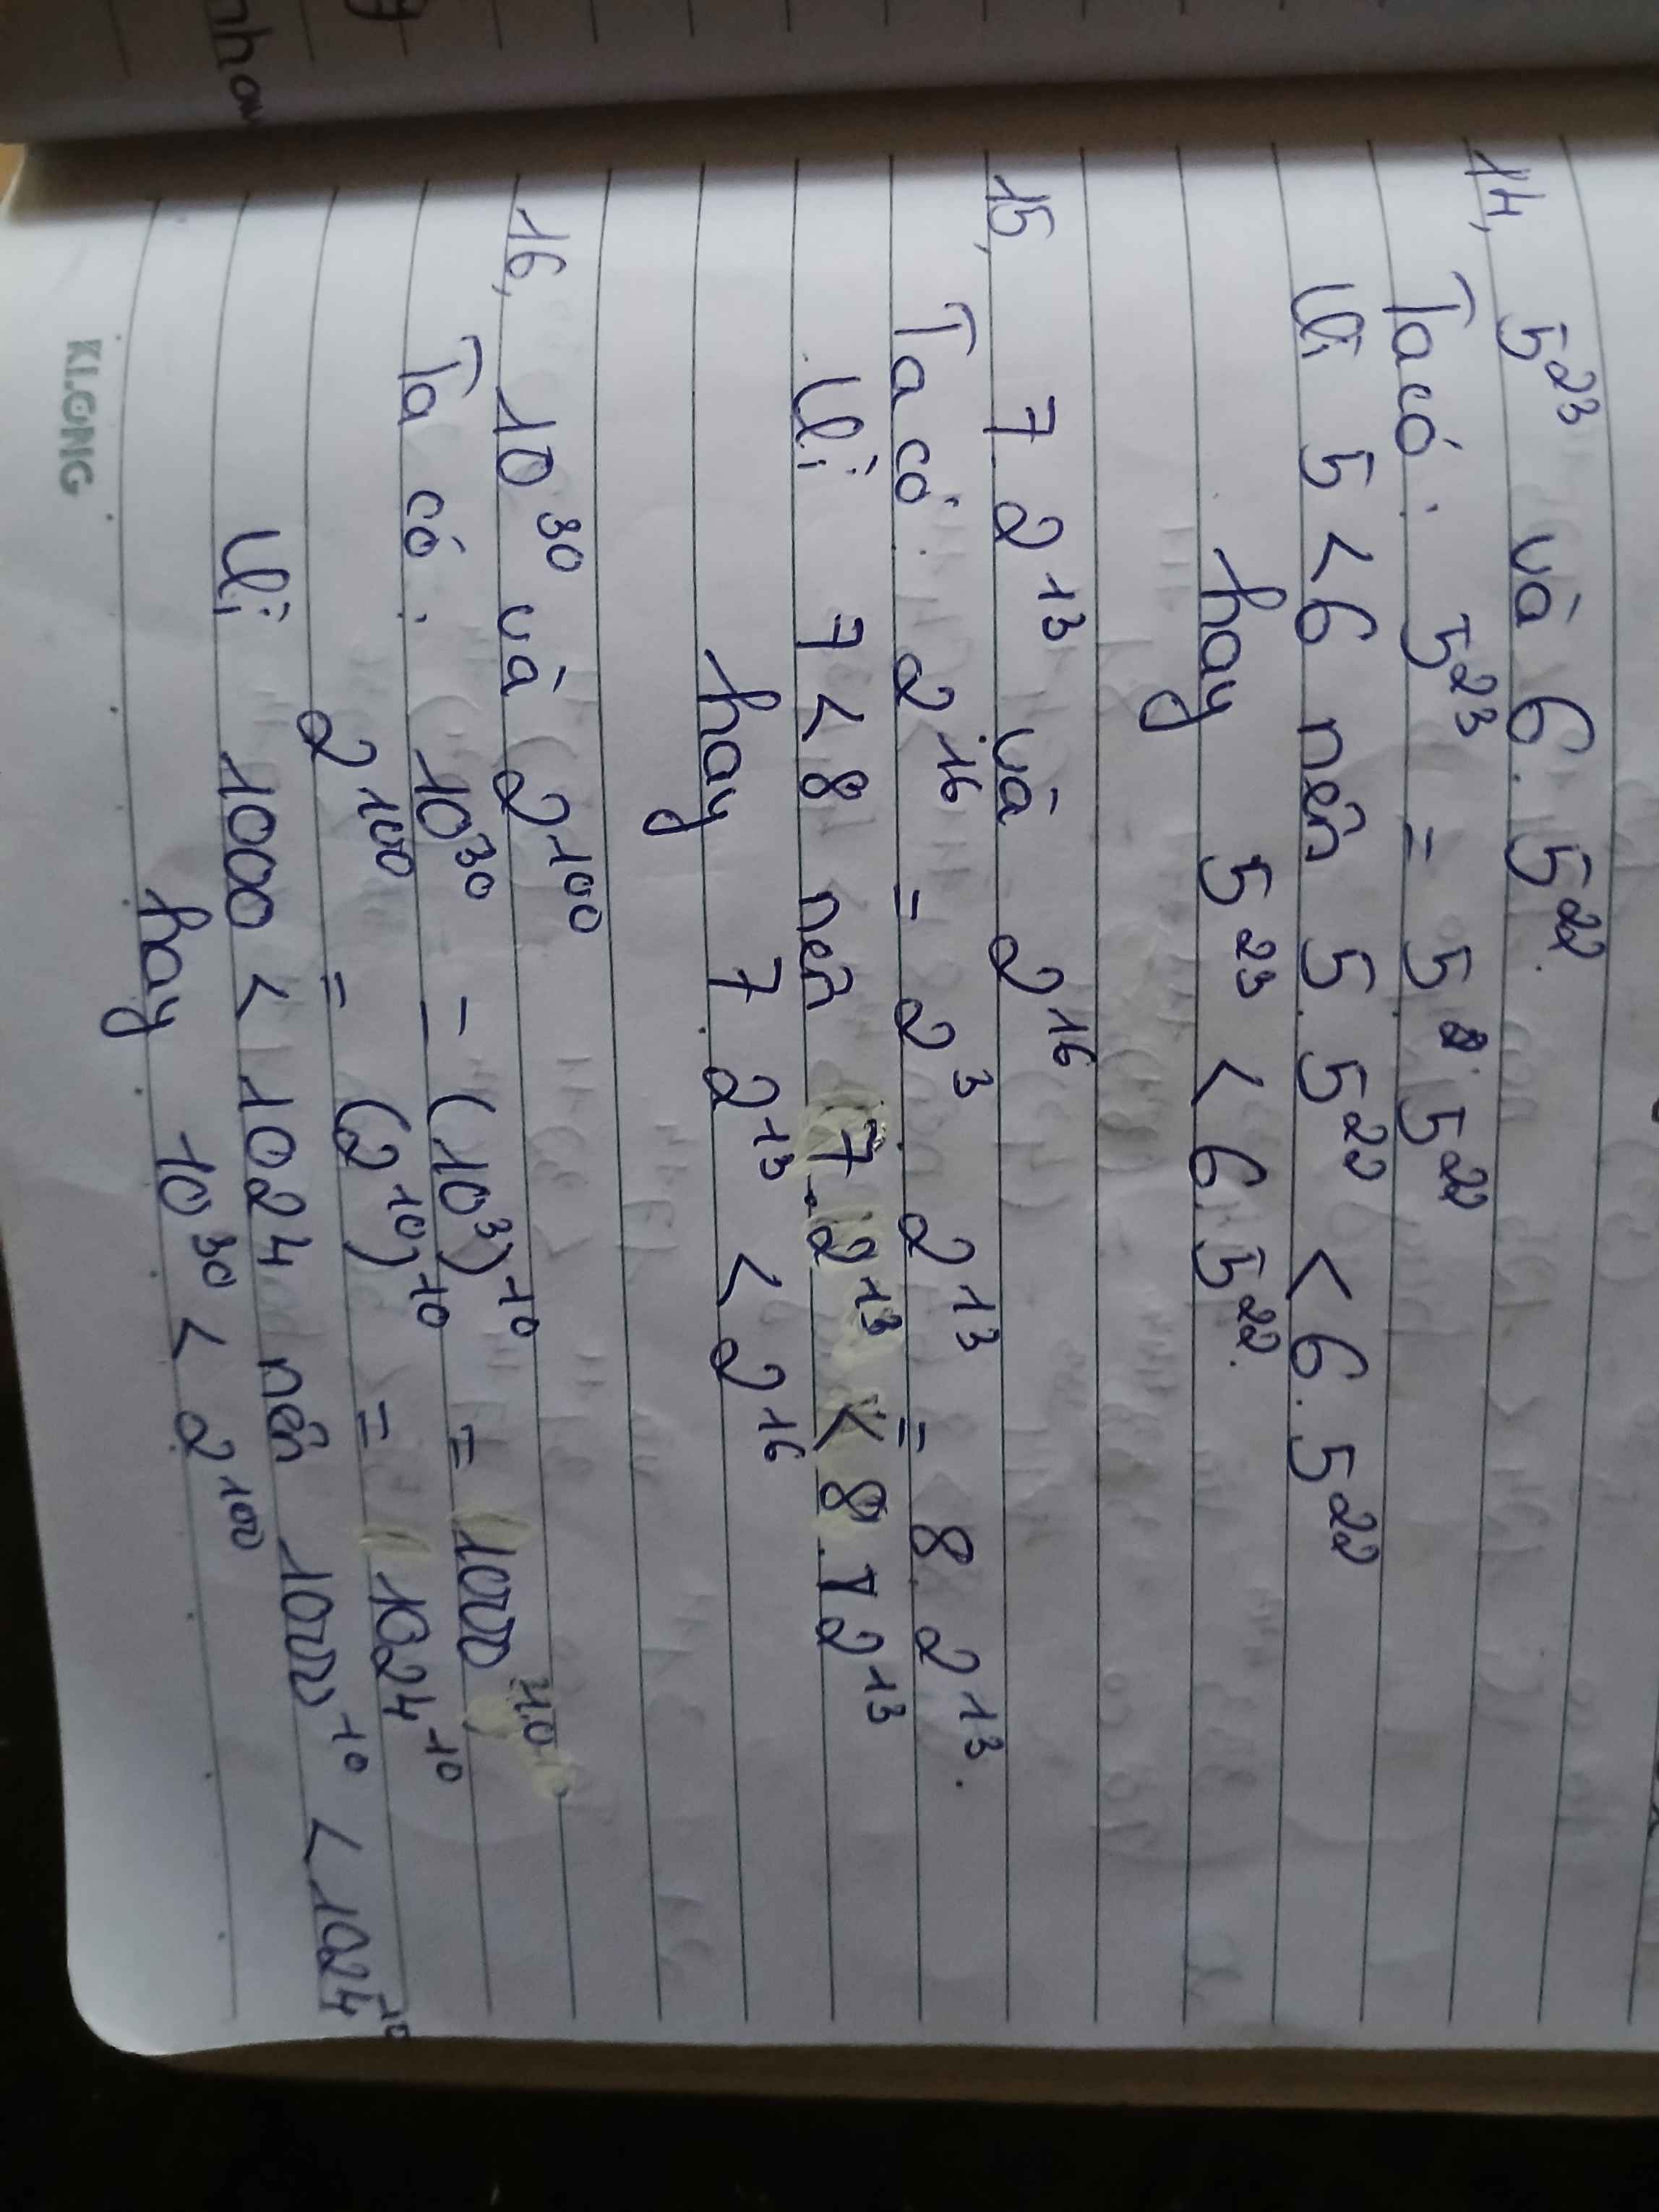 14, 5²³ và 6. 5²².
Ta có: 5²³ = 5. 5²²
Vì 5 < 6 nên 5. 5²² < 6. 5²²
hay 5²³ < 6. 5²².
15, 7. 2¹³ và 2¹⁶
Ta có: 2¹⁶ = 2³. 2¹³ = 8. 2¹³.
Vì 7 < 8 nên 7. 2¹³ < 8. 2¹³
hay 7. 2¹³ < 2¹⁶
16, 10³⁰ và 2¹⁰⁰
Ta có: 10³⁰ = (10³)¹⁰ = 1000¹⁰
2¹⁰⁰ = (2¹⁰)¹⁰ = 1024¹⁰
Vì 1000 < 1024 nên 1000¹⁰ < 1024¹⁰
hay 10³⁰ < 2¹⁰⁰
KLONG